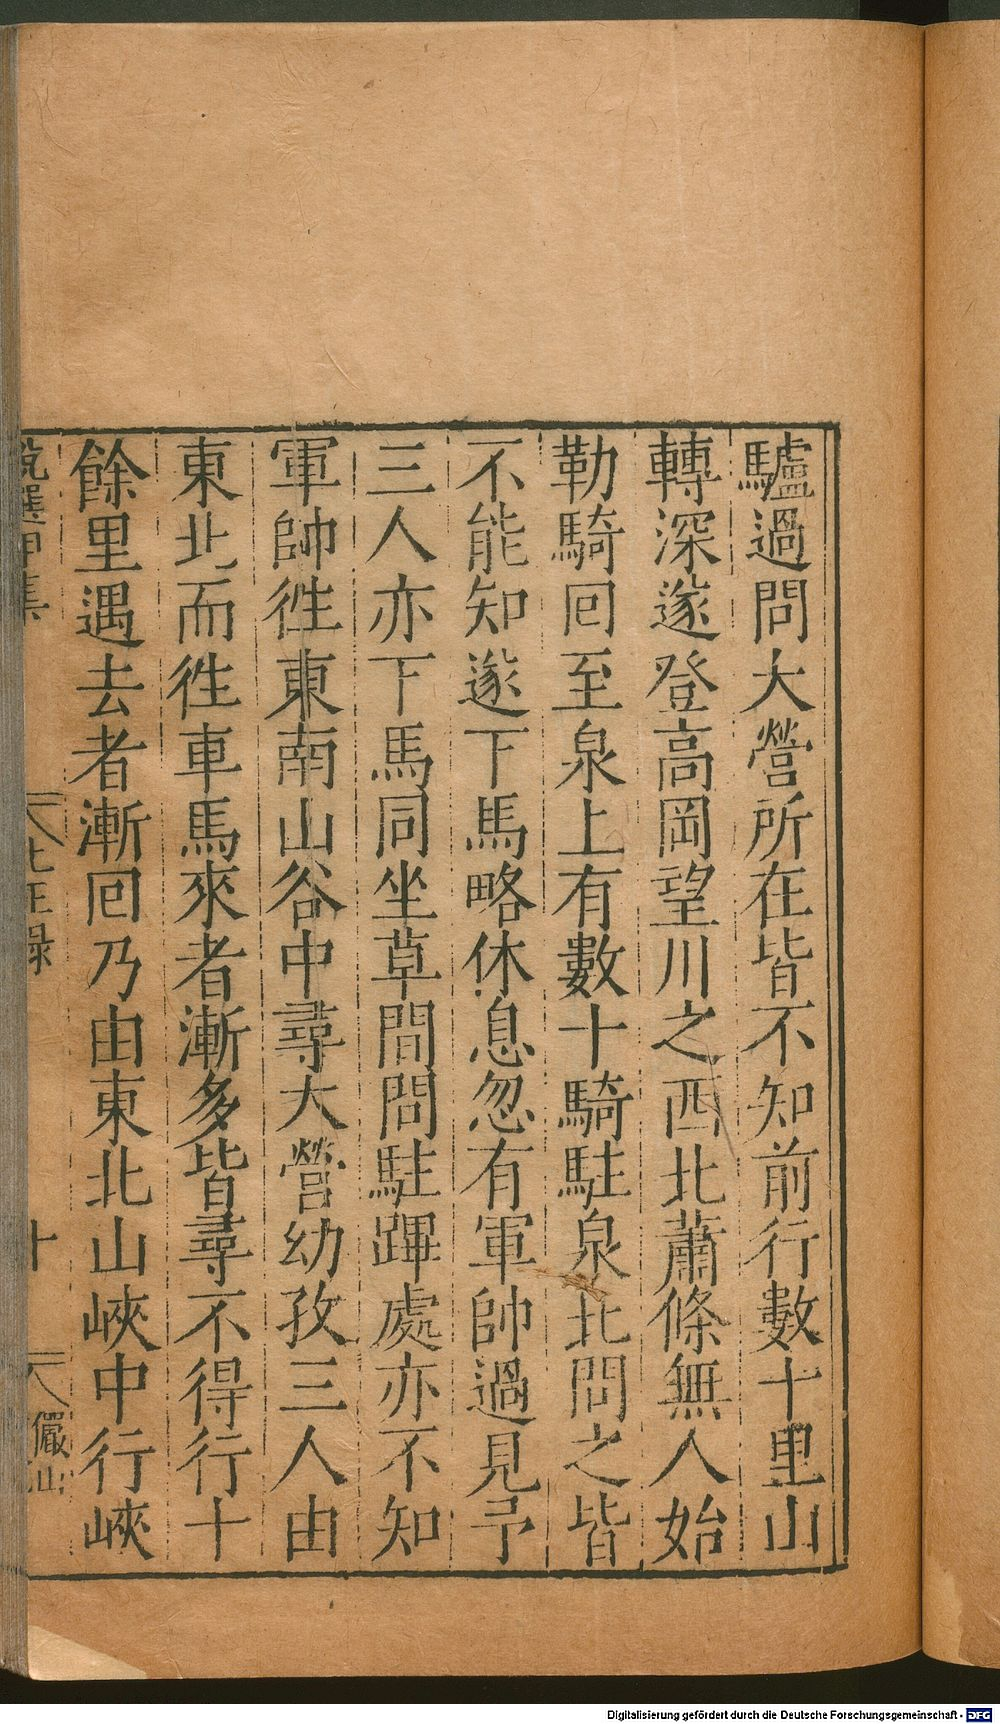 驢過問大營所在皆不知前行數十里山
轉深遂登高岡望川之西北蕭條無人始
勒騎回至泉上有數十騎駐泉北問之皆
不能知遂下馬略休息忽有軍帥過見予
三人亦下馬同坐草間問駐蹕處亦不知
軍帥徃東南山谷中尋大營幼孜三人由
東北而徃車馬來者漸多皆尋不得行十
餘里遇去者漸回乃由東北山峽中行峽
說選甲集
北征錄
十
儼山
Digitalisierung gefördert durch die Deutsche Forschungsgemeinschaft - DFG